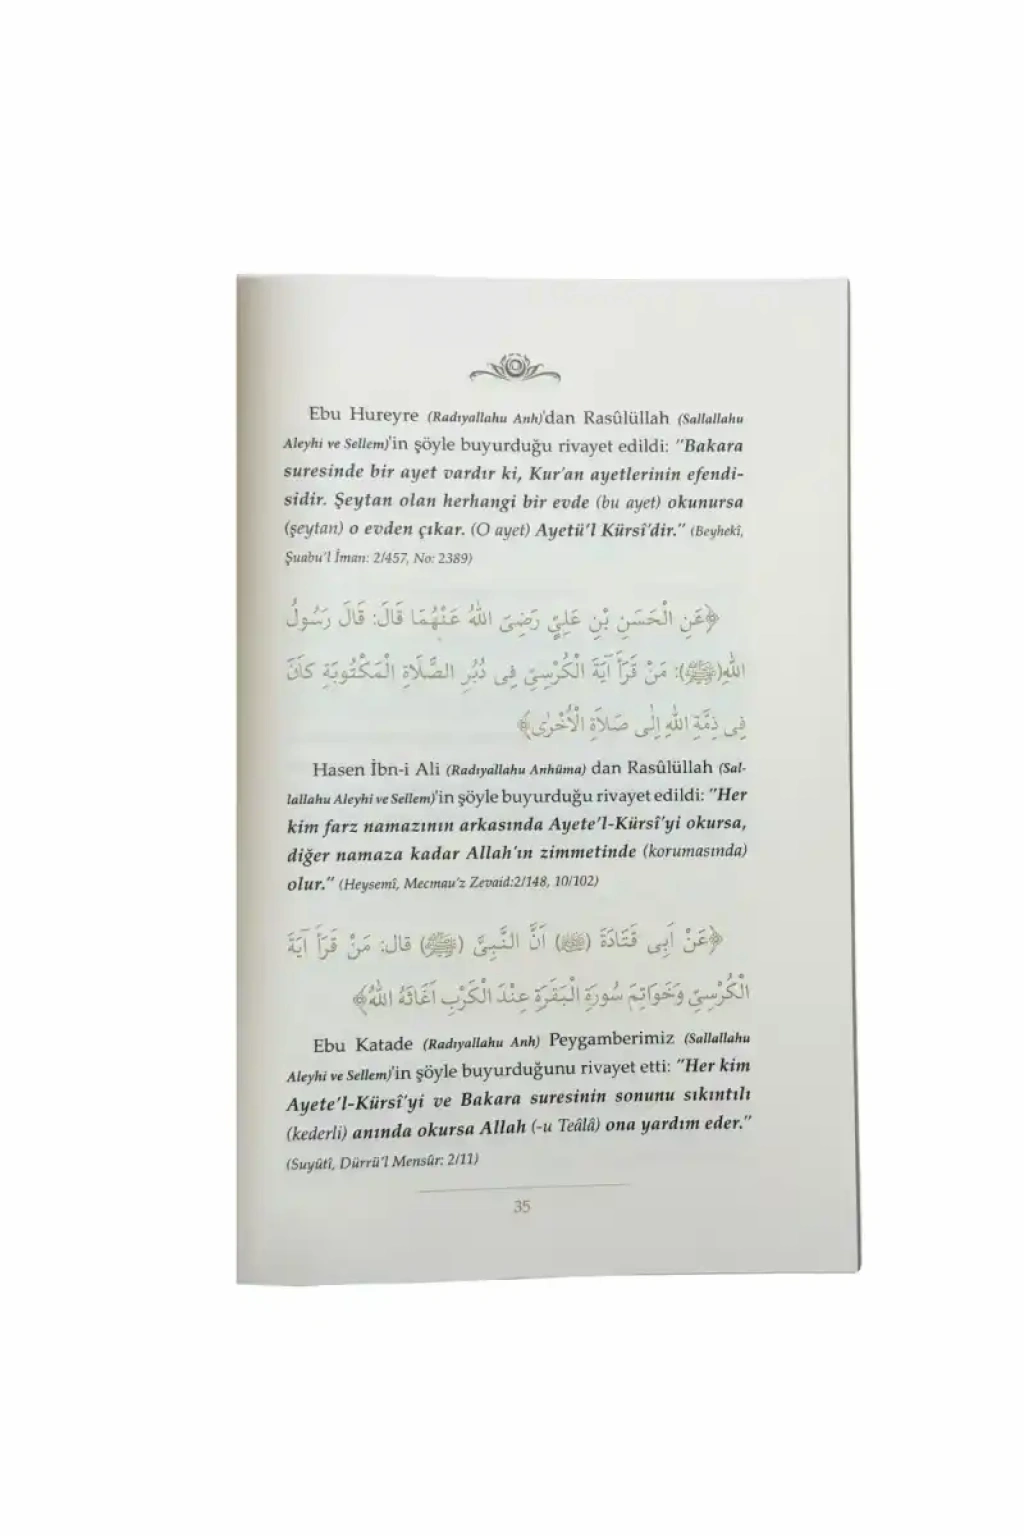 Ebu Hureyre (Radıyallahu Anh)'dan Rasûlüllah (Sallallahu
Aleyhi ve Sellem)'in şöyle buyurduğu rivayet edildi: "Bakara
suresinde bir ayet vardır ki, Kur'an ayetlerinin efendi-
sidir. Şeytan olan herhangi bir evde (bu ayet) okunursa
(şeytan) o evden çıkar. (O ayet) Ayetü'l Kürsî'dir." (Beyhekî,
Şuabu'l Îman: 2/457, No: 2389)
﴿عَنِ الْحَسَنِ بْنِ عَلِيٍّ رَضِىَ اللهُ عَنْهُمَا قَالَ: قَالَ رَسُولُ
اللهِ(ﷺ): مَنْ قَرَأَ آيَةَ الْكُرْسِيِّ فِى دُبُرِ الصَّلَاةِ الْمَكْتُوبَةِ كَانَ
فِى ذِمَّةِ اللهِ اِلَى صَلَاةِ الْأُخْرٰى﴾
Hasen İbn-i Ali (Radıyallahu Anhüma) dan Rasûlüllah (Sal-
lallahu Aleyhi ve Sellem)'in şöyle buyurduğu rivayet edildi: "Her
kim farz namazının arkasında Ayete'l-Kürsî'yi okursa,
diğer namaza kadar Allah'ın zimmetinde (korumasında)
olur." (Heysemî, Mecmau'z Zevaid:2/148, 10/102)
﴿عَنْ اَبِى قَتَادَةَ (ﷺ) اَنَّ النَّبِىَّ (ﷺ) قال: مَنْ قَرَأَ آيَةَ
الْكُرْسِيِّ وَخَوَاتِمَ سُورَةِ الْبَقَرَةِ عِنْدَ الْكَرْبِ اَغَاثَهُ اللهُ﴾
Ebu Katade (Radıyallahu Anh) Peygamberimiz (Sallallahu
Aleyhi ve Sellem)'in şöyle buyurduğunu rivayet etti: "Her kim
Ayete'l-Kürsî'yi ve Bakara suresinin sonunu sıkıntılı
(kederli) anında okursa Allah (-u Teâlâ) ona yardım eder."
(Suyûtî, Dürrü'l Mensûr: 2/11)
35